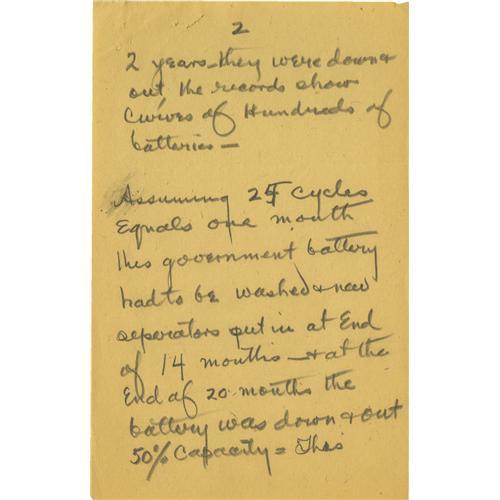 2
2 years—they were down &
out the records show
Curves of Hundreds of
batteries—
Assuming 25 Cycles
Equals one month
this government battery
had to be washed & new
seperators put in at End
of 14 months—& at the
End of 20 months the
battery was down & out
50% Capacity = This